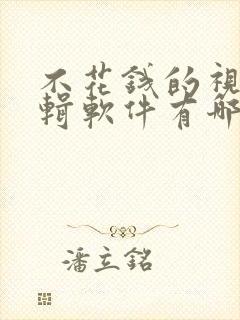 不花錢的視
輯軟件有哪
潘立銘